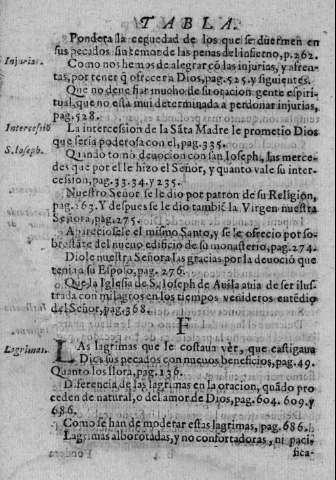 TABLA.
Pondera la ceguedad de los que se duermen en
sus pecados sin temor de las penas del infierno, p.262.
Injurias.
Como nos hemos de alegrar cõ las injurias, y afren-
tas, por tener q̃ ofrecer a Dios, pag. 525. y siguientes.
Que no deue fiar mucho de su oracion gente espiri-
tual, que no está mui determinada a perdonar injurias,
pag. 528.
Intercessiõ
S. Ioseph.
La intercession de la Sãta Madre le prometio Dios
que seria poderosa con el, pag. 335.
Quando tomó deuocion con san Ioseph, las merce-
des que por el le hizo el Señor, y quanto vale su inter-
cession, pag. 33. 34. y 235.
Nuestro Señor se le dio por patron de su Religion,
pag. 263. Y despues se le dio tambiẽ la Virgen nuestra
Señora, pag. 275.
Apareciosele el mismo Santo, y se le ofrecio por so-
brestãte del nueuo edificio de su monasterio, pag. 274.
Diole nuestra Señora las gracias por la deuociõ que
tenia a su Esposo, pag. 276.
Que la Iglesia de S. Ioseph de Auila auia de ser ilus-
trada con milagros en los tiempos venideros entẽdio
del Señor, pag. 368.
Lagrimas.
LAs lagrimas que le costaua ver, que castigaua
Dios sus pecados con nueuos beneficios, pag. 49.
Quanto los llora, pag. 136.
Diferencia de las lagrimas en la oracion, quãdo pro
ceden de natural, o del amor de Dios, pag. 604. 609. y
686.
Como se han de moderar estas lagrimas, pag. 686.
Lagrimas alborotadas, y no confortadoras, ni paci-
fica-